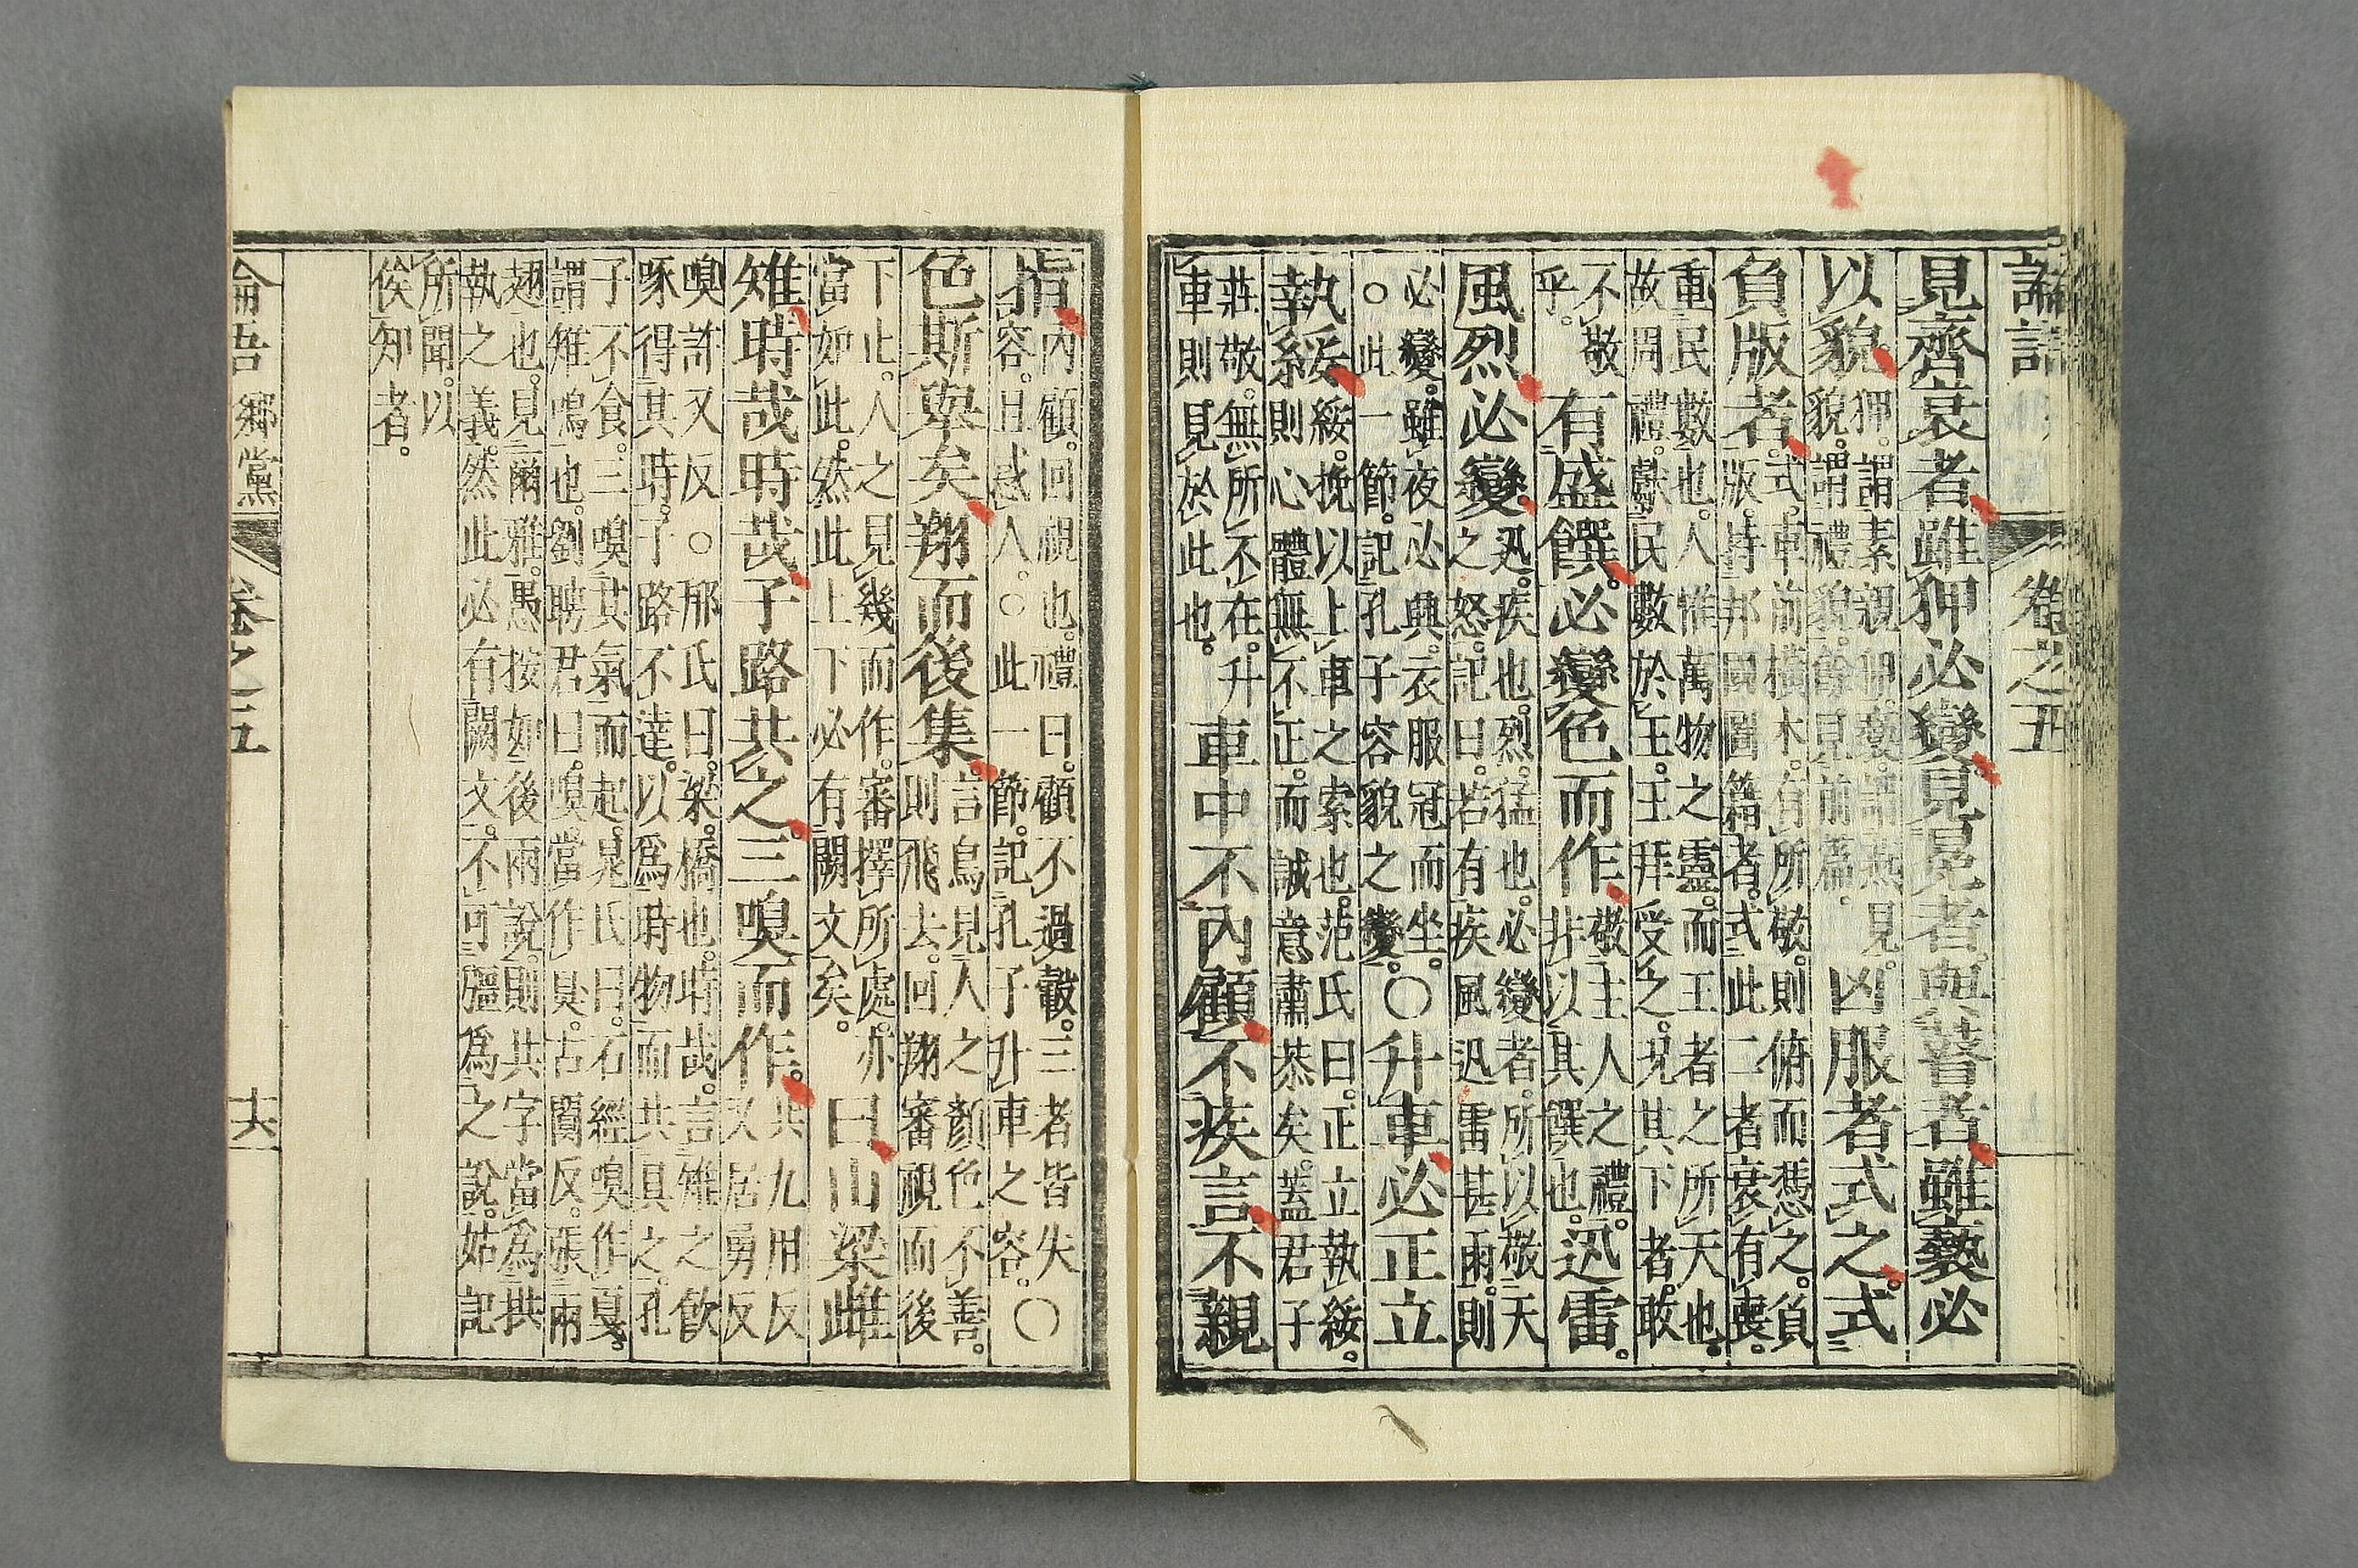 論語 卷之五
見齊衰者雖狎必變見冕者與瞽者雖褻必
以貌
狎。謂素親狎。褻。謂燕見。
貌。謂禮貌。餘見前篇。
凶服者式之。式
負版者
式。車前橫木。有所敬。則俯而憑之。負
版。持邦國圖籍者。式此二者。哀有喪。
重民數也。人惟萬物之靈。而王者之所天也。
故周禮。獻民數於王。王拜受之。況其下者。敢
不敬
乎。
有盛饌。必變色而作
敬主人之禮。
非以其饌也。
迅雷。
風烈必變。
迅。疾也。烈。猛也。必變者。所以敬天
之怒。記曰。若有疾風迅雷甚雨。則
必變。雖夜必興。衣服冠而坐。
○此一節。記孔子容貌之變。
○升車必正立
執綏
綏。挽以上車之索也。范氏曰。正立執綏。
則心體無不正。而誠意肅恭矣。蓋君子
莊敬。無所不在。升
車則見於此也。
車中不內顧不疾言不親
指
內顧。回視也。禮曰。顧不過轂。三者皆失
容。且惑人。○此一節。記孔子升車之容。
○
色斯舉矣翔而後集
言鳥見人之顏色不善。
則飛去。回翔審視而後
下止。人之見幾而作。審擇所處。亦
當如此。然此上下必有闕文矣。
曰山梁雌
雉時哉時哉子路共之。三嗅而作。
共九用反
又居勇反
嗅許又反○邢氏曰。梁。橋也。時哉。言雉之飲
啄得其時。子路不達。以爲時物而共具之。孔
子不食。三嗅其氣而起。晁氏曰。石經嗅作戛。
謂雉鳴也。劉聘君曰。嗅。當作狊。古闃反。張兩
翅也。見爾雅。愚按如後兩說。則共字當爲拱
執之義。然此必有闕文。不可彊爲之說。姑記
所聞。以
俟知者。
論語 鄉黨 卷之五 十六